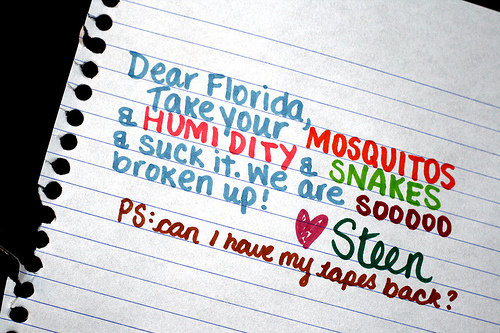 Dear Florida,
Take your MOSQUITOS
& HUMIDITY & SNAKES
& suck it. We are SOOOOO
broken up!
Steen
PS: can I have my tapes back?